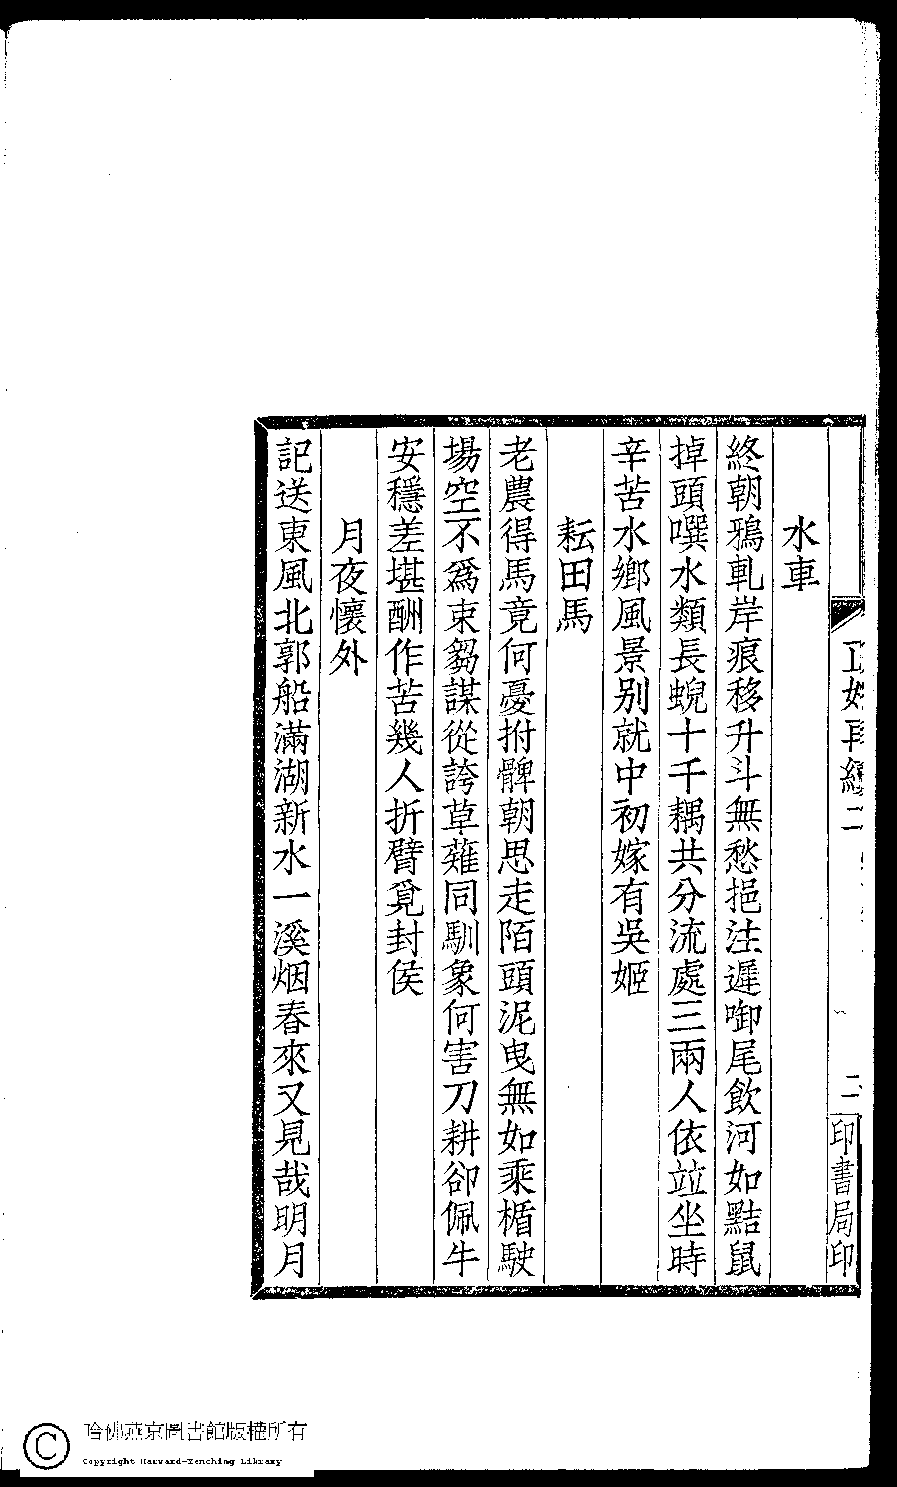 水車
終朝鴉軋岸痕移升斗無愁挹注遲啣尾飲河如黠鼠
掉頭噀水類長蜺十千耦共分流處三兩人依竝坐時
辛苦水鄉風景别就中初嫁有吳姬
耘田馬
老農得馬竟何憂拊髀朝思走陌頭泥曳無如乘楯駛
場空不爲束芻謀從誇草薙同馴象何害刀耕卻佩牛
安穩差堪酬作苦幾人折臂覓封侯
月夜懷外
記送東風北郭船滿湖新水一溪烟春來又見哉明月
正始再續二
二
印書局印
哈佛燕京圖書館版權所有
Copyright Harvard-Yenching Library